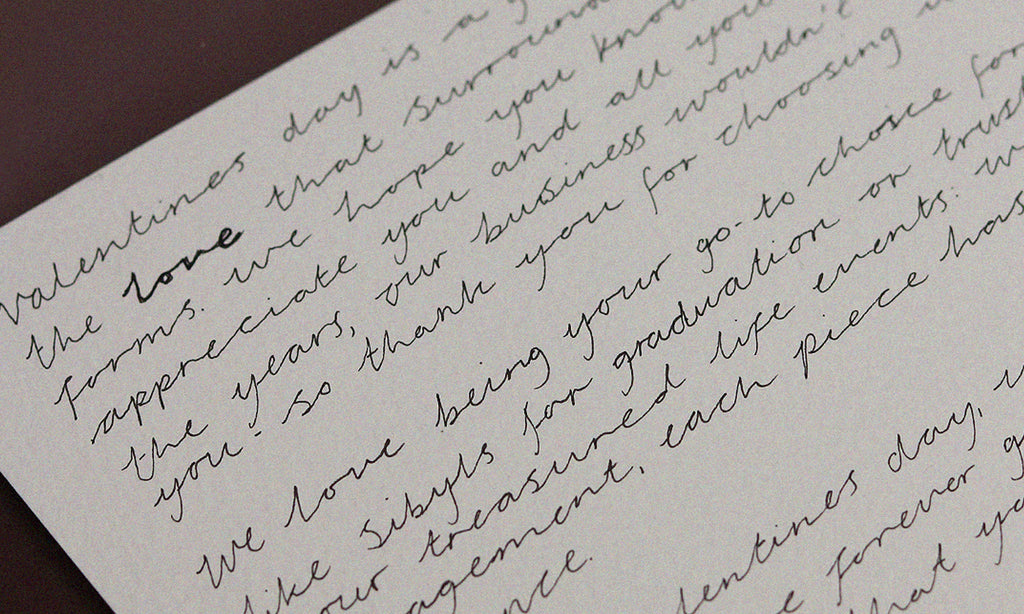 Valentines day is a
the love that surround
forms. we hope you know
appreciate you and all you
the years, our business wouldn't
you - so thank you for choosing
We love being your go-to chose for
like sibyls for graduation or trust
our treasured life events. w
agement, each piece has
nce.
lentines day,
forever g
hat yo